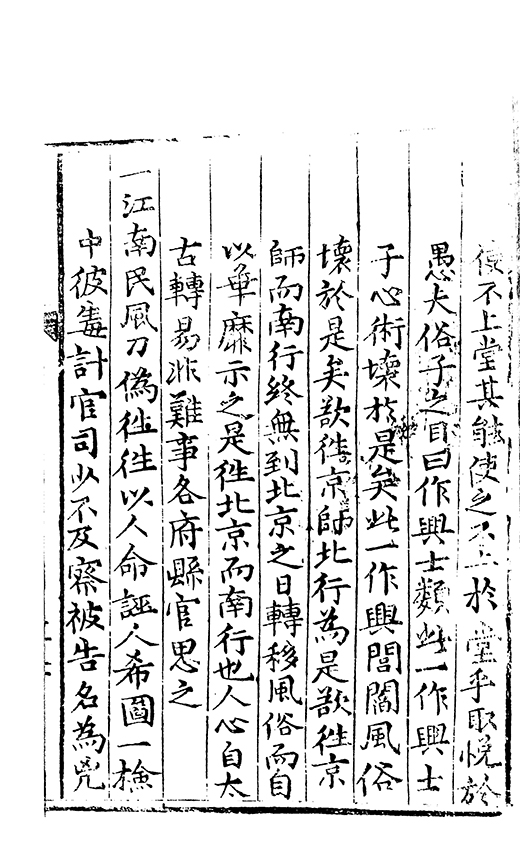 使不上堂其能使之不上於堂乎取悅於
愚夫俗子之目曰作興士類此一作興士
子心術壞於是矣此一作興閭閻風俗
壞於是矣欲徃京師北行為是欲徃京
師而南行終無到北京之日轉移風俗而自
以華靡示之是徃北京而南行也人心自太
古轉易非難事各府縣官思之
一江南民風刀偽徃徃以人命誣人希圖一檢
中彼毒計官司少不及察被告名為兇